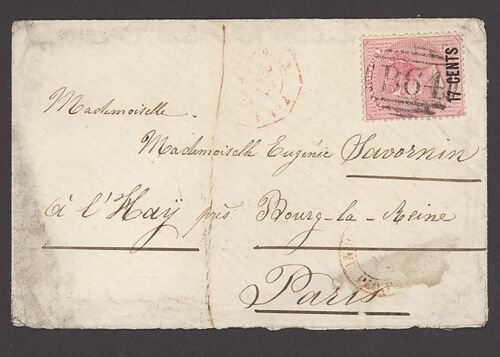 B64
17 CENTS
Mademoiselle.
Mademoiselle Eugénie Savornin
à l'Haÿ près Bourg-la-Reine
Paris